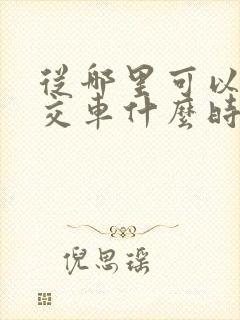 從哪里可以
交車什麼時
倪思瑶